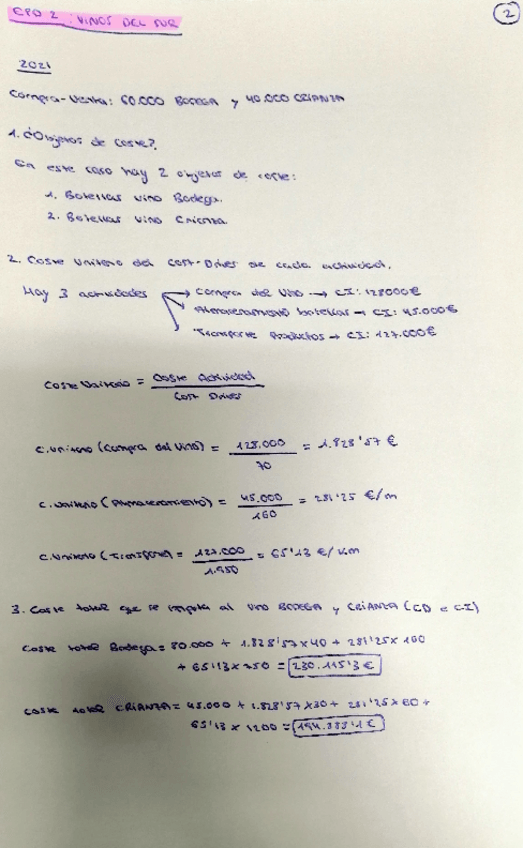 2
CPD 2 : VINOS DEL SUR
2021
Compra-Venta: 60.000 BODEGA y 40.000 CRIANZA
1. ¿Objetos de coste?
En este caso hay 2 objetos de coste:
1. Botellas vino Bodega.
2. Botellas vino Crianza
2. Coste Unitario del Cost-Driver de cada actividad.
Hay 3 actividades → Compra del Vino → CI: 128000€
→ Almacenamiento botellas → CI: 45.000€
→ Transporte Productos → CI: 127.000€
Coste Unitario = Coste Actividad
Cost Driver
C. Unitario (Compra del Vino) = 128.000 = 1.828'57 €
70
C. Unitario (Almacenamiento) = 45.000 = 281'25 €/m
160
C. Unitario (Transporte) = 127.000 = 65'13 €/Km
1.950
3. Coste total que se imputa al vino BODEGA y CRIANZA (CD e CI)
Coste total Bodega = 80.000 + 1.828'57 x 40 + 281'25 x 100
+ 65'13 x 750 = 230.115'3 €
Coste total CRIANZA = 45.000 + 1.828'57 x 30 + 281'25 x 60 +
65'13 x 1200 = 194.888'1 €